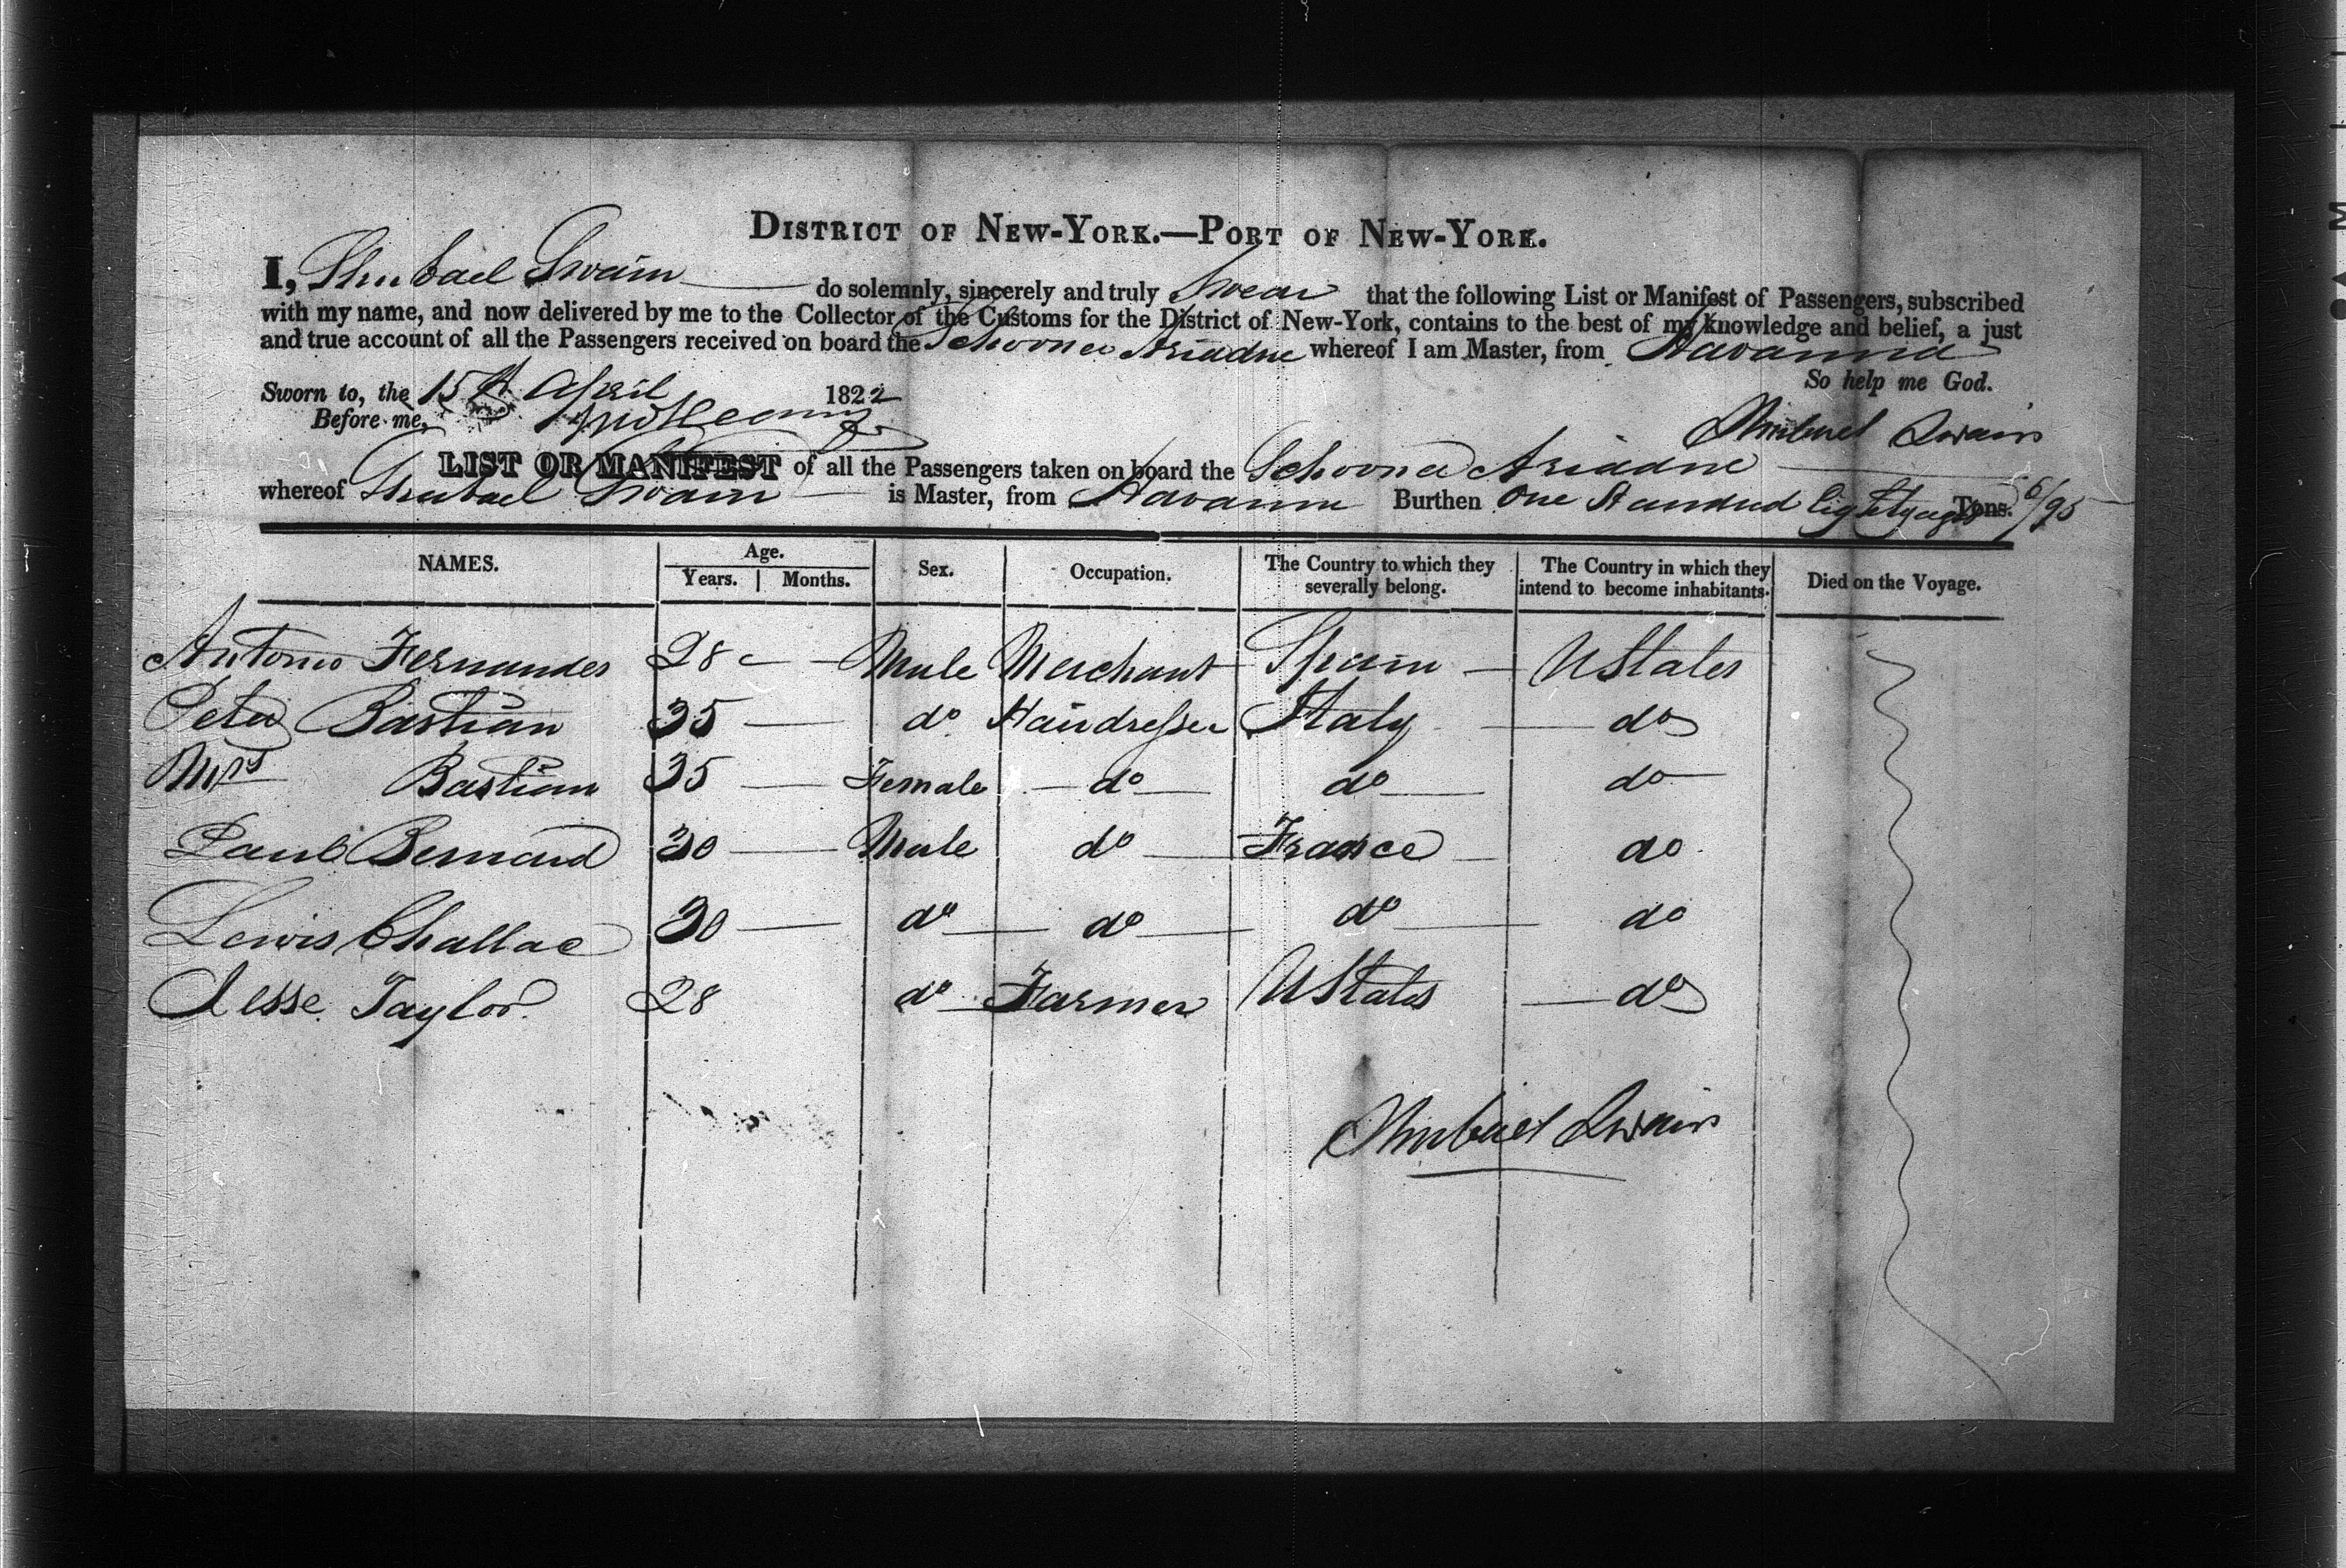 DISTRICT OF NEW-YORK.—PORT OF NEW-YORK.
I, Shubael Swain do solemnly, sincerely and truly Swear that the following List or Manifest of Passengers, subscribed
with my name, and now delivered by me to the Collector of the Customs for the District of New-York, contains to the best of my knowledge and belief, a just
and true account of all the Passengers received on board the Schooner Ariadne whereof I am Master, from Havanna
So help me God.
Sworn to, the 15th April 1822
Before me,
Shubael Swain
LIST OR MANIFEST of all the Passengers taken on board the Schooner Ariadne
whereof Shubael Swain is Master, from Havanna Burthen One Hundred Eighty Tons. /95
NAMES. Age. Years. Months. Sex. Occupation. The Country to which they severally belong. The Country in which they intend to become inhabitants. Died on the Voyage.
Antonio Fernandes 28 Male Merchant Spain UStates
Peter Bastian 35 do Hairdresser Italy do
Mrs Bastian 35 Female do do do
Paul Bernard 30 Male do France do
Lewis Challac 30 do do do do
Jesse Taylor 28 do Farmer UStates do
Shubael Swain